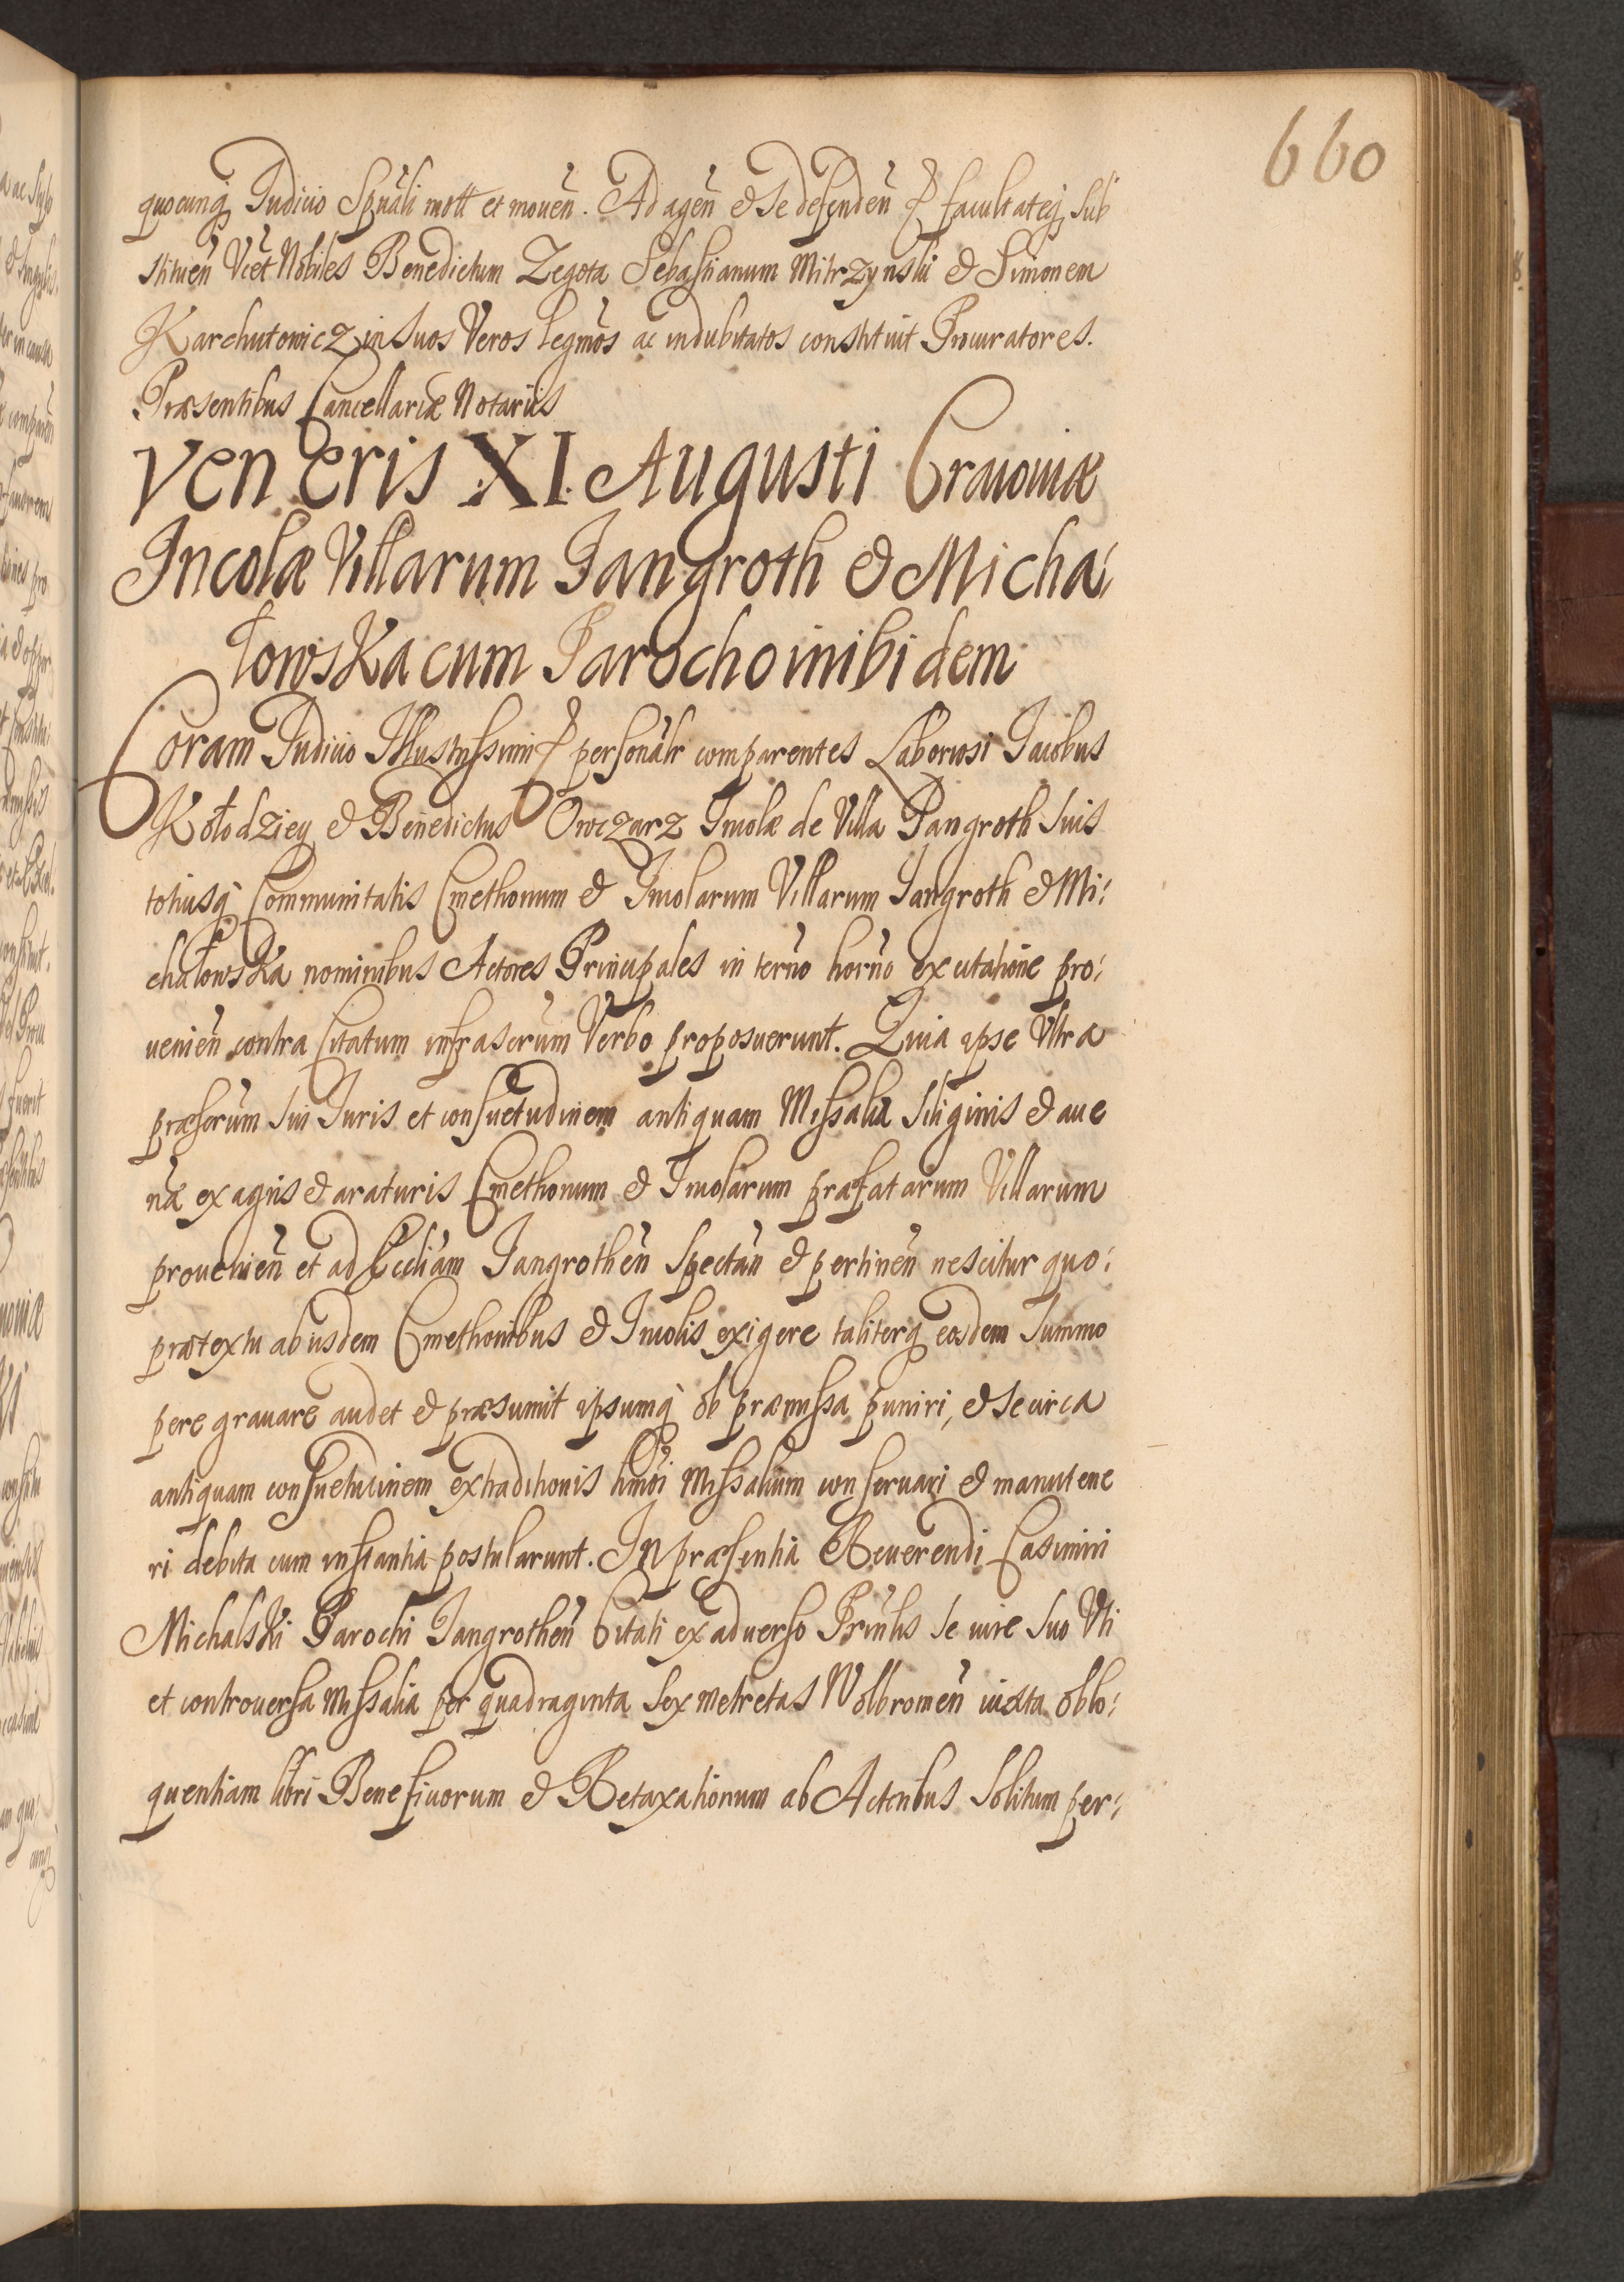 660
quocunq Judicio Spnāli mott et mouēn. Ad agēn & Se defendēn & facultateq sub
stituēn Vcēt Nobiles Benedictum Zegota Sebastianum Mitrzynski & Simonem
Karchutowicz in suos Veros legmōs ac indubitatos constituit Procuratores.
Præsentibus Cancellariæ Notarijs
Veneris XI Augusti Cracouiæ
Incolæ Villarum Jangroth & Micha:
łowska cum Parocho inibidem
Coram Judicio Illustrissimi & personālr comparentes Laboriosi Jacobus
Kołodziey & Benedictus Owczarz Incolæ de Villa Pangroth suis
totiusq Communitatis Cmethonum & Incolarum Villarum Jangroth & Mi:
chałowska nominibus Actores Principales in termō hornō ex citatione pro:
ueniēn contra Citatum infrascrūm Verbo proposuerunt. Quia ipse Vltra
præscrūm sui Juris et consuetudinem antiquam Missalia siliginis & aue
næ ex agris & araturis Cmethonum & Incolarum præfatarum Villarum
prouchiēn et ad Eccliam Jangrothēn spectān & pertinēn nescitur quo:
prætextu ab ijsdem Cmethonibus & Incolis exigere taliterq eosdem summo
pere grauare audet & præsumit ipsumq ob præmissa puniri, & se circa
antiquam consuetudinem extraditionis hmōi Missalium conseruari & manutene
ri debita cum instantia postularunt. In præsentia Reuerendi Casimiri
Michalski Parochi Jangrothēn Citati ex aduerso Prinlis se iure suo Vti
et controuersa Missalia per quadraginta sex metretas Wolbromēn iuxta oblo:
quentiam libri Beneficiorum & Retaxationum ab Actoribus solitum per: